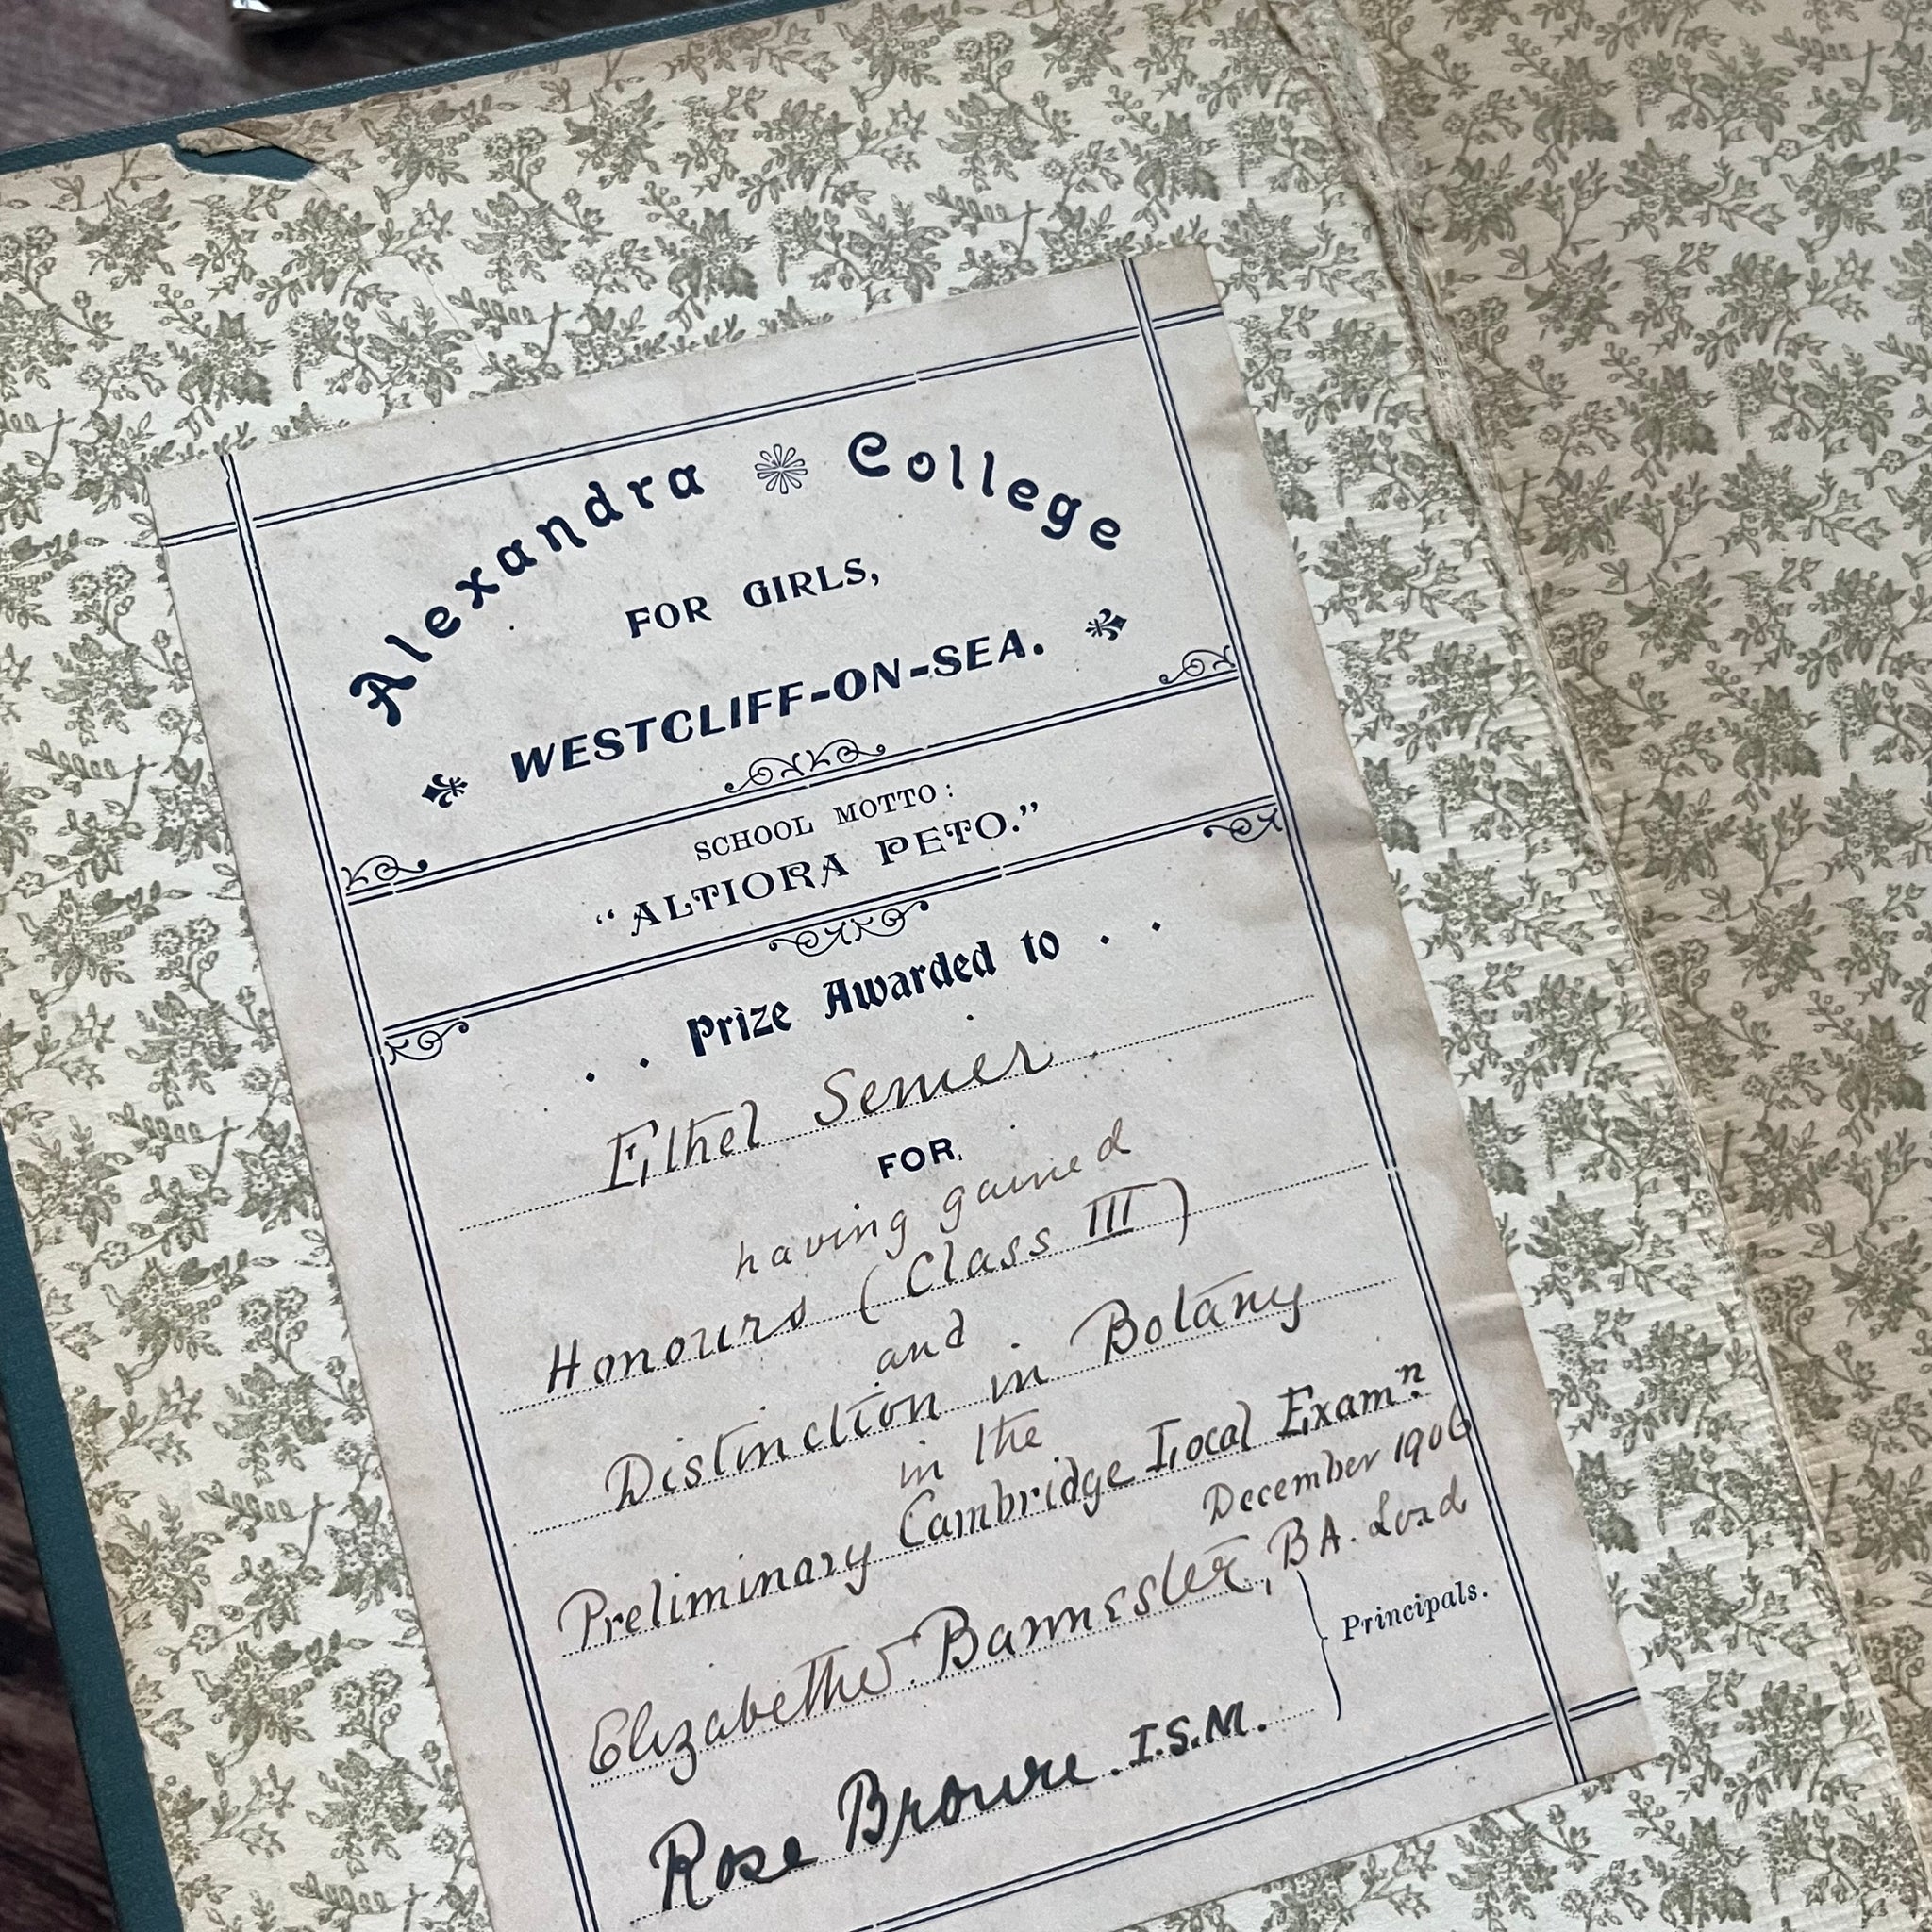 Alexandra College
FOR GIRLS,
WESTCLIFF-ON-SEA.
SCHOOL MOTTO:
"ALTIORA PETO."
Prize Awarded to . .
Ethel
FOR
having gained
Honours (Class III)
and
Distinction in Botany
in the
Preliminary Cambridge Local Examn.
December 1906
Elizabeth Bannister, BA. Lond
Principals.
Rose Browne. I.S.M.